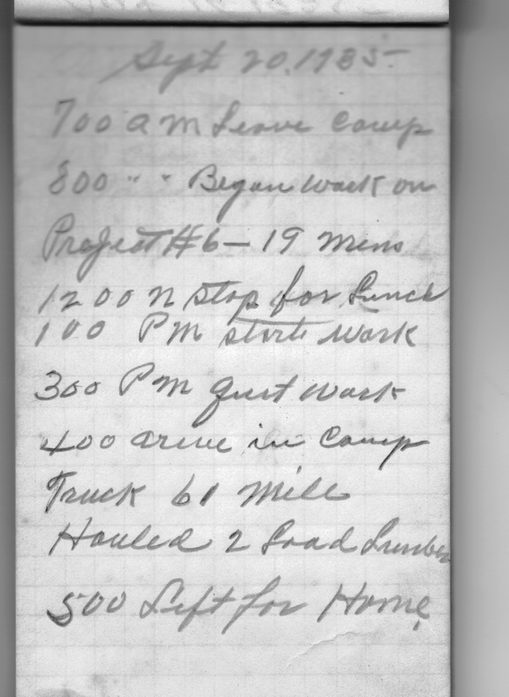 Sept 20, 1935
700 a m Leave Camp
800 " " Began work on
Project #6 - 19 mens
1200 n stop for Lunch
100 PM start work
300 PM quit work
400 arive in Camp
Truck 61 mile
Hauled 2 Load Lumber
500 Left for Home